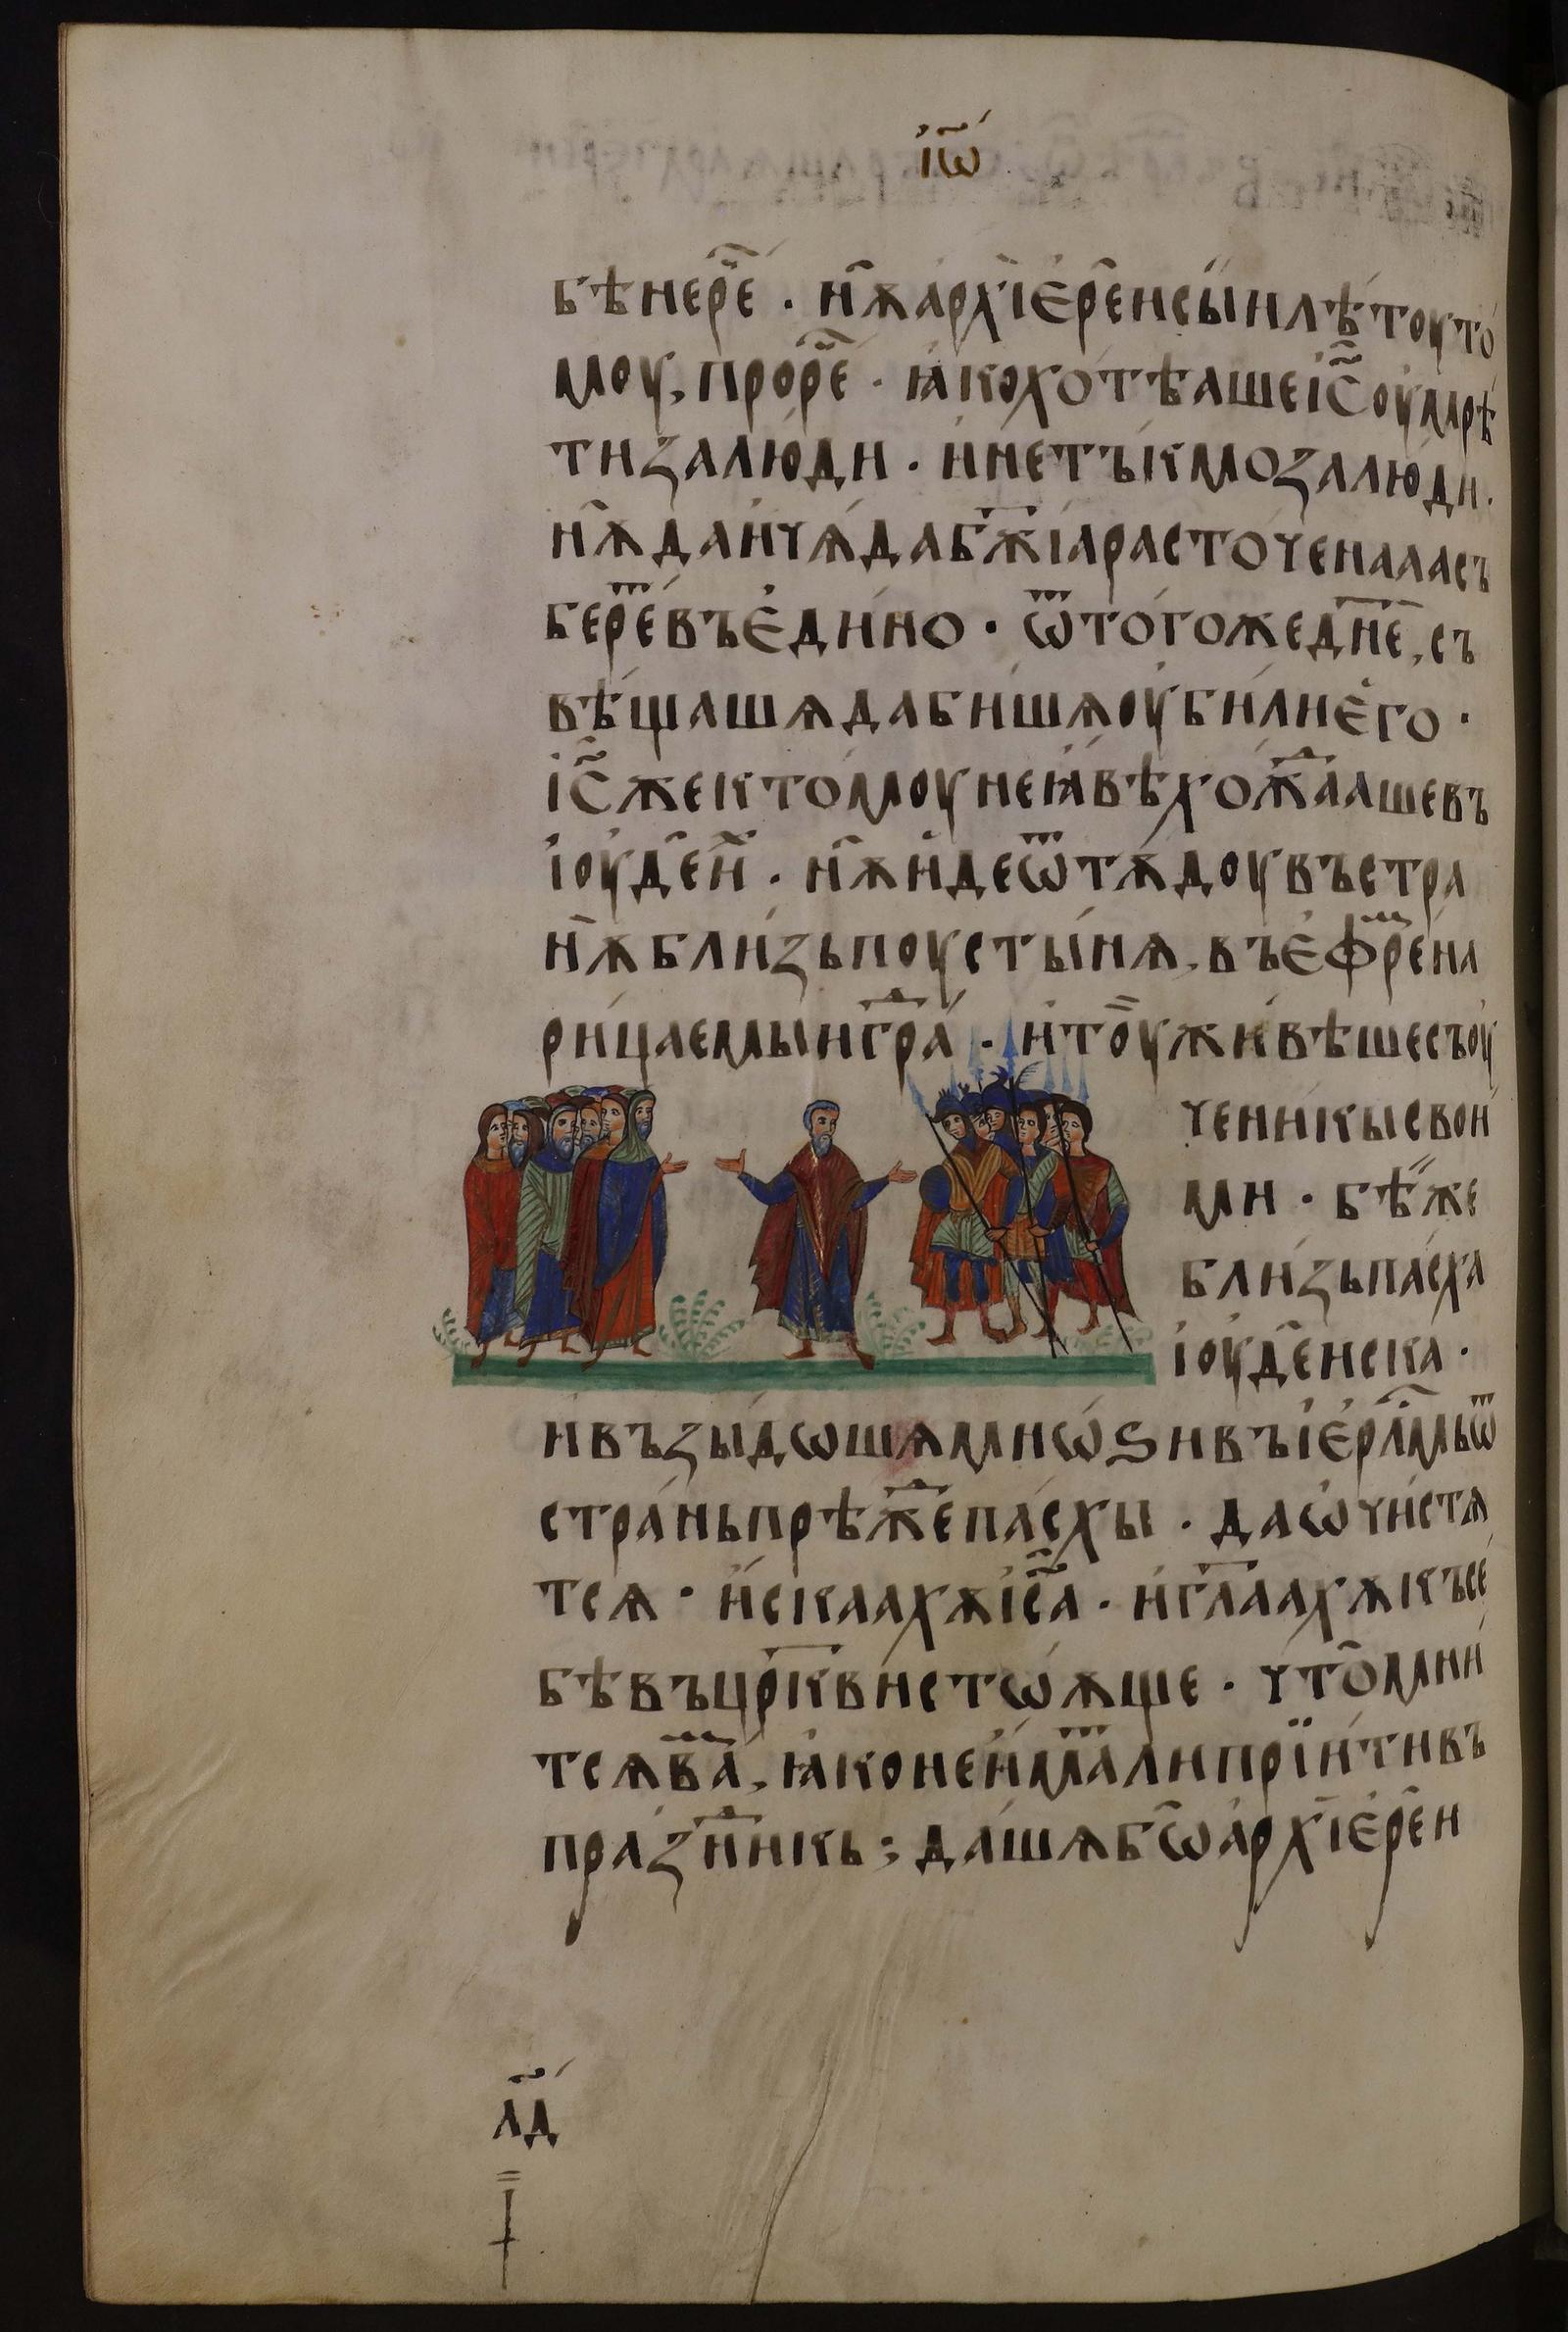 і҆ѡ҃
бѣнере҃ . нѫ҆архі҆ере҆исы́илѣ́тоуто́
моу, проре҃ . ꙗ҆кохо́тѣашеі҆с҃оу҆мрѣ́
тизалю́ди . и҆нетъ́кмозалю́ди .
нѫ҆даи҆чѧ́дабж҃і́арасто́ченаасъ
бере́въе҆ди́но . ѿто́гожедн҃е, съ
вѣ́щашѧдаби́шѧоу҆би́лие҆го̀ .
і҆с҃жектомоу̀неꙗ҆вѣхожⷣаашевъ
і҆оуде́и . нѫ҆и҆деѿтѫ́доувъстра
нѫ҆бли́зьпоусты́нѧ, въе҆фре́на
ри́цаемыигра́ . и҆тоу̀жи́вѣшесъоу҆
чени́кысвои́
ми . бѣ́же
бли́зьпа́сха
і҆оуде́иска .
и҆възыдѡшѧмнѡ́ѕивъі҆ерⷭ҇лмьѿ
стра́ньпрѣжⷣепа́схы . даѡ҆чи́стѧ
тсѧ . и҆скаахѫі҆с҃а . и҆гл҃аахѫкъсе́
бѣвъцр҃кви́стѡѫще . что́мни́
тсѧва́, ꙗ҆конеи҆ма́липрїи́тивъ
пра́зⷣникь ; да́шѧбѡ҆архі҆ере́и
л҃д